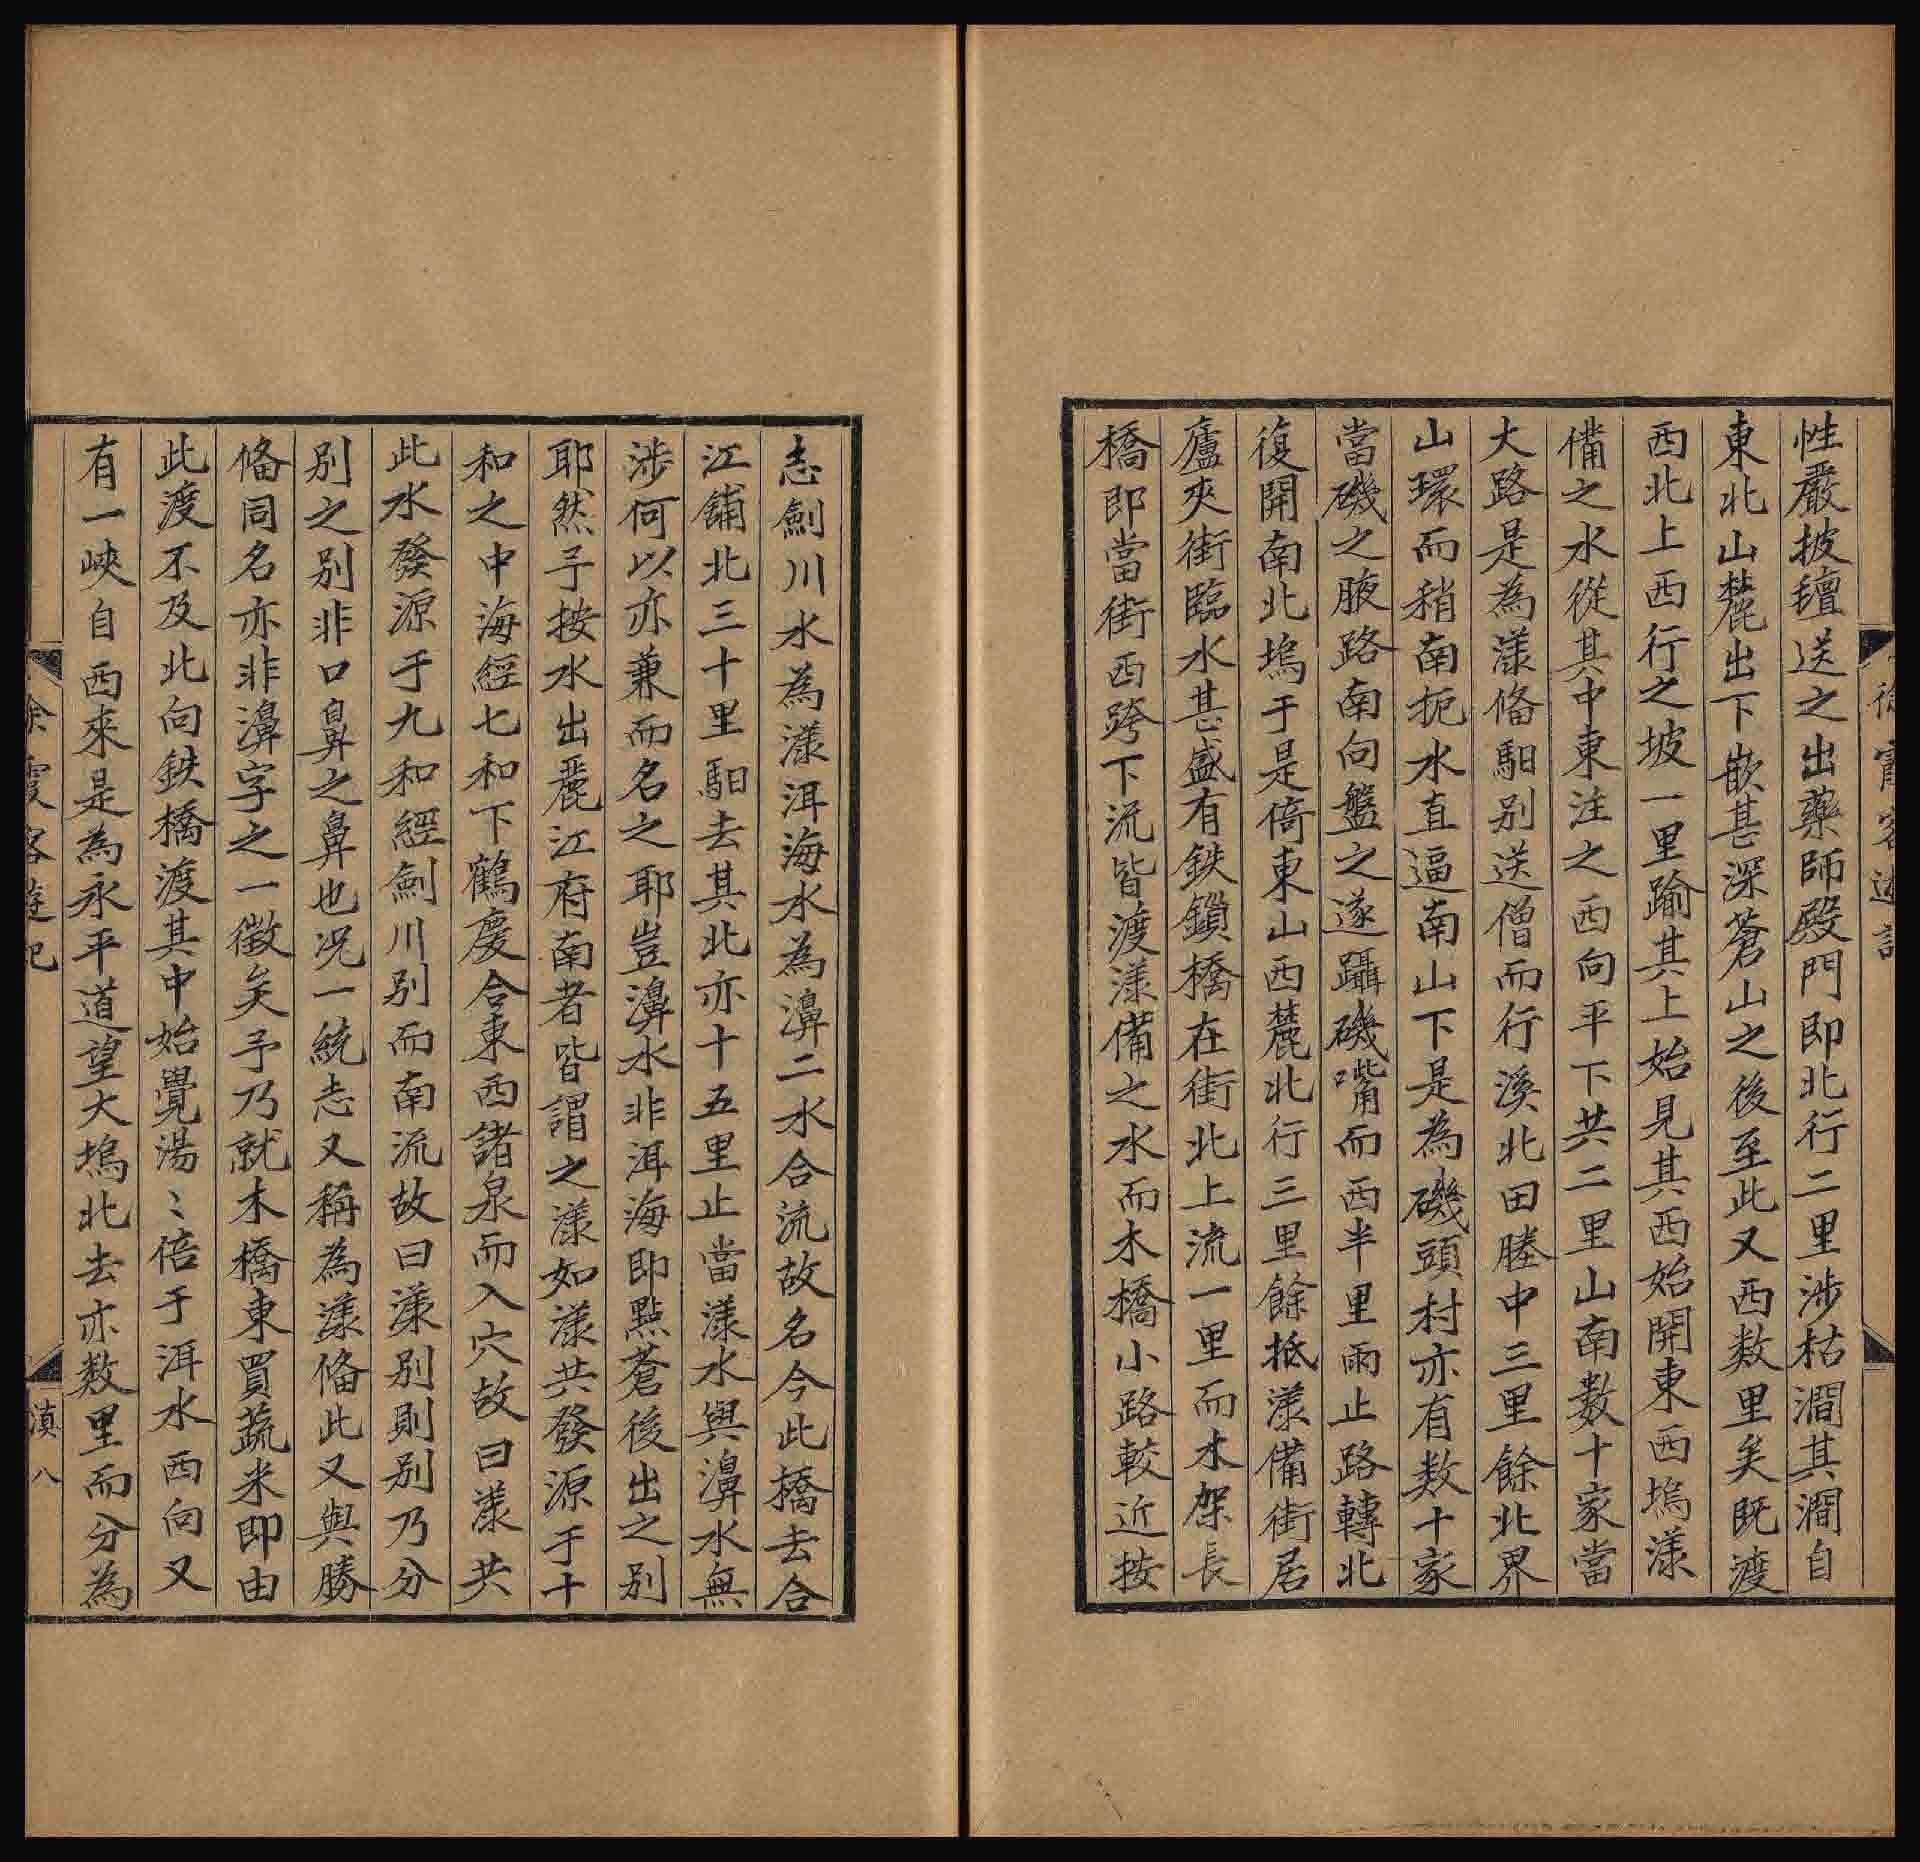 性嚴披氊送之出藥師殿門即北行二里涉枯澗其澗自
東北山麓出下嵌甚深蒼山之後至此又西数里矣既渡
西北上西行之坡一里踰其上始見其西始開東西塢漾
備之水從其中東注之西向平下共二里山南數十家當
大路是為漾俻馹別送僧而行溪北田塍中三里餘北界
山環而稍南扼水直逼南山下是為磯頭村亦有数十家
當磯之腋路南向盤之遂躡磯嘴而西半里雨止路轉北
復開南北塢于是倚東山西麓北行三里餘抵漾備街居
廬夾街臨水甚盛有鉄鎖橋在街北上流一里而木架長
橋即當街西跨下流皆渡漾備之水而木橋小路較近按
志劍川水為漾洱海水為濞二水合流故名今此橋去合
江舖北三十里馹去其北亦十五里止當漾水與濞水無
涉何以亦兼而名之耶豈濞水非洱海即點蒼後出之別
耶然予按水出麗江府南者皆謂之漾如漾共發源于十
和之中海經七和下鶴慶合東西諸泉而入穴故曰漾共
此水發源于九和經劍川別而南流故曰漾別則別乃分
別之別非口鼻之鼻也况一統志又稱為漾俻此又與勝
俻同名亦非濞字之一徵矣予乃就木橋東買蔬米即由
此渡不及北向鉄橋渡其中始覺湯〻倍于洱水西向又
有一峽自西來是為永平道望大塢北去亦数里而分為
徐霞客遊記
滇八